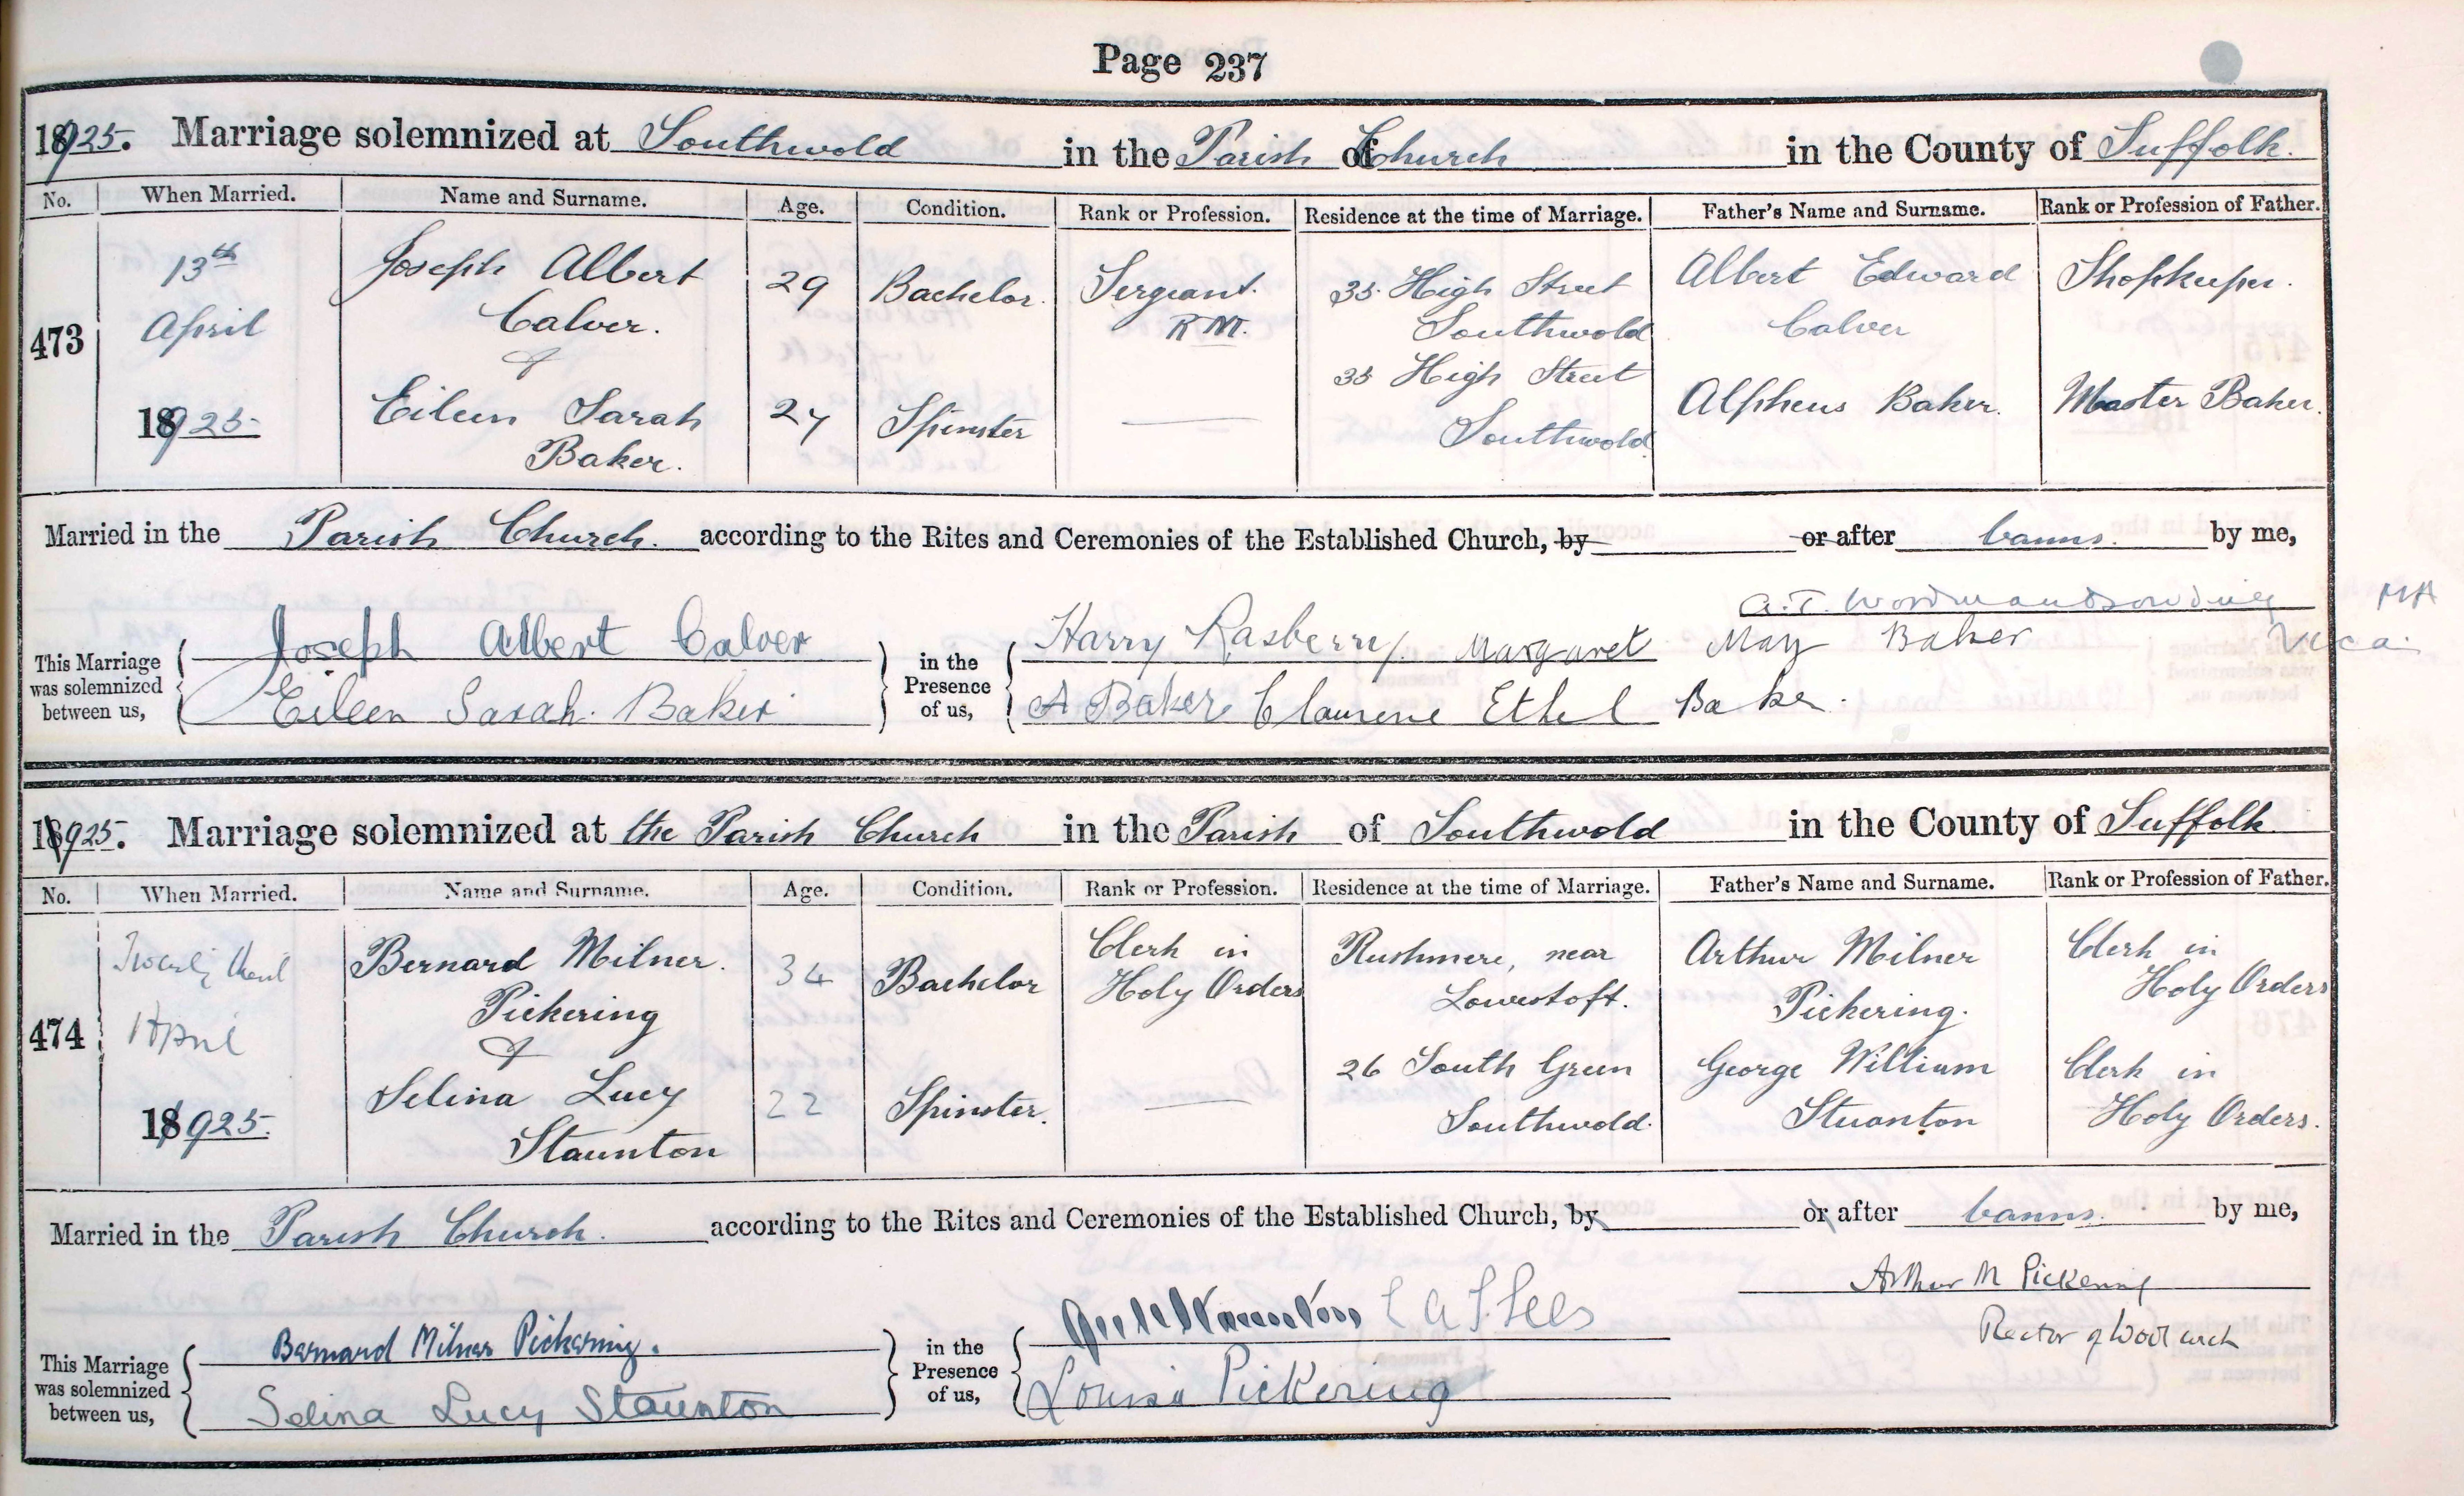 Page 237
1925. Marriage solemnized at Southwold in the Parish of Church in the County of Suffolk.
No. When Married. Name and Surname. Age. Condition. Rank or Profession. Residence at the time of Marriage. Father's Name and Surname. Rank or Profession of Father.
473
13th
April
1925.
Joseph Albert
Calver.
&
Eileen Sarah
Baker.
29
27
Bachelor.
Spinster
Sergeant.
R.M.
35 High Street
Southwold
35 High Street
Southwold
Albert Edward
Calver
Alpheus Baker.
Shopkeeper.
Master Baker.
Married in the Parish Church. according to the Rites and Ceremonies of the Established Church, by or after banns. by me,
MA
This Marriage was solemnized between us,
Joseph Albert Calver
Eileen Sarah Baker
in the Presence of us,
Harry Rasberry. Margaret May Baker
A Baker Ethel Baker.
Vicar
1925. Marriage solemnized at the Parish Church in the Parish of Southwold in the County of Suffolk
No. When Married. Name and Surname. Age. Condition. Rank or Profession. Residence at the time of Marriage. Father's Name and Surname. Rank or Profession of Father.
474
April
1925.
Bernard Milner.
Pickering
&
Selina Lucy
Staunton
34
22
Bachelor
Spinster.
Clerk in
Holy Orders
Rushmere, near
Lowestoft.
26 South Green
Southwold.
Arthur Milner
Pickering.
George William
Stuanton
Clerk in
Holy Orders
Clerk in
Holy Orders.
Married in the Parish Church. according to the Rites and Ceremonies of the Established Church, by or after banns. by me,
Arthur M Pickering
Rector of
This Marriage was solemnized between us,
Bernard Milner Pickering.
Selina Lucy Staunton
in the Presence of us,
Louisa Pickering